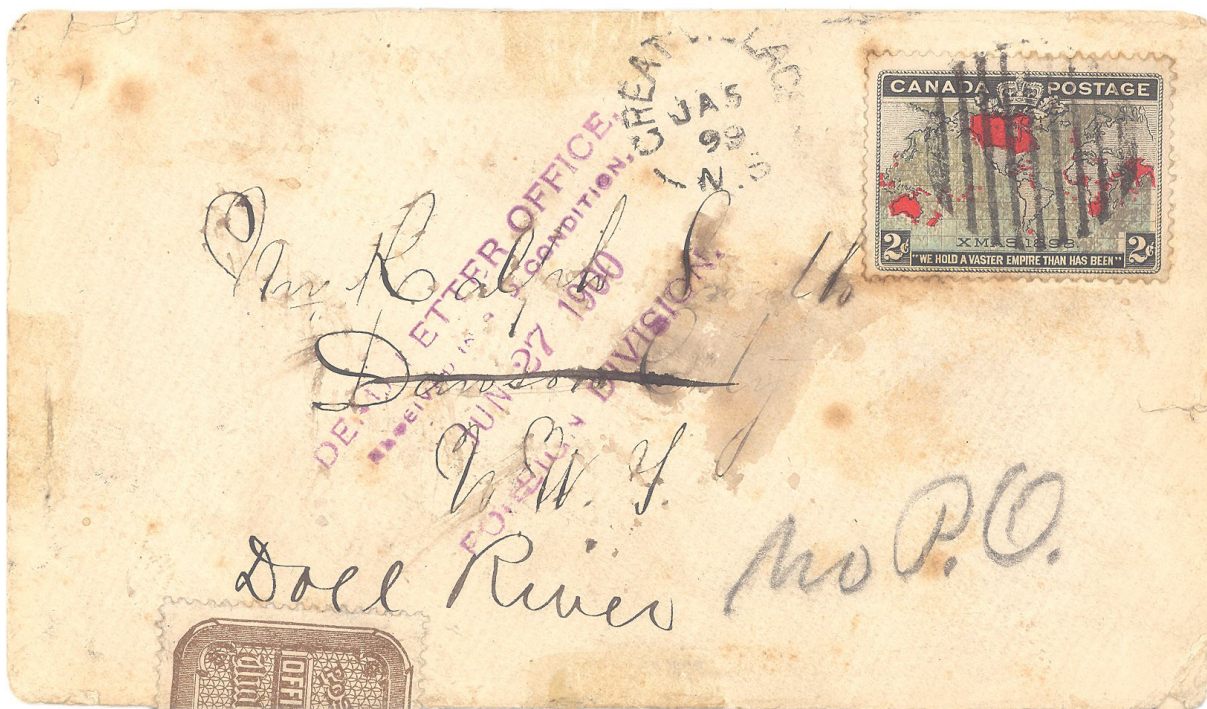 GREAT VILLAGE
JA 5
99
N.S
CANADA POSTAGE
XMAS 1898
2¢ 2¢
"WE HOLD A VASTER EMPIRE THAN HAS BEEN"
DEAD LETTER OFFICE,
RECEIVED IN CONDITION,
JUN 27 1900
FOREIGN DIVISION.
Mr. Ralph S
Dawson City
N. W. T.
Doll River
no P.O.
OFFI